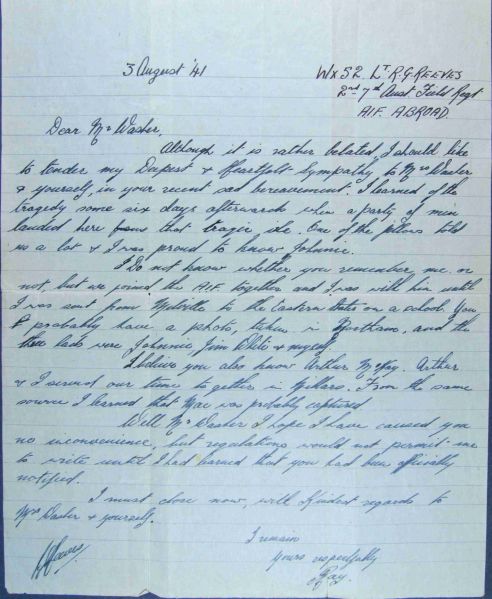 3 August '41
WX52 Lt R.G. REEVES
2nd 7th Aust Field Regt
AIF. ABROAD
Dear Mr
Although it is rather belated, I should like
to tender my Deepest & Heartfelt Sympathy to Mrs
& yourself, in your recent sad bereavement. I learned of the
tragedy some six days afterwards when a party of men
landed here from that tragic isle. One of the fellows told
us a lot & I was proud to know Johnnie.
I do not know whether you remember me or
not, but we joined the A.I.F. together and I was with him until
I was sent from Melville to the Eastern States on a school. You
probably have a photo, taken in Northam, and the
three lads were Johnnie, Jim & myself.
I believe you also know Arthur McKay. Arthur
& I served our time together in Millars. From the same
source I learned that Mac was probably captured
Well Mr I hope I have caused you
no inconvenience, but regulations would not permit me
to write until I had learned that you had been officially
notified.
I must close now, with kindest regards to
Mrs & yourself.
I remain
Yours respectfully
Ray.